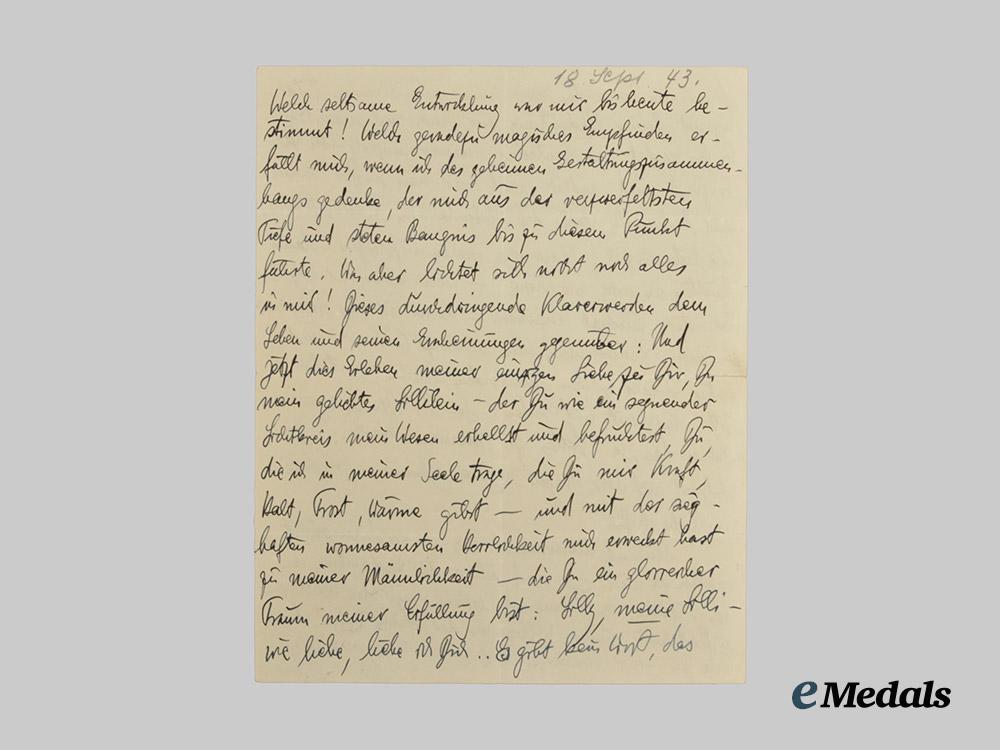 18. Sept. 43.
Welch seltsame Entwicklung war mir bis heute be-
stimmt! Welch geradezu magisches Empfinden er-
füllt mich, wenn ich des geheimen Gestaltungszusammen-
hangs gedenke, der mich aus der verzweifeltsten
Tiefe und steten Bangnis bis zu diesem Punkt
führte. Wie aber lichtet sich nicht noch alles
in mir! Dieses durchdringende Klarerwerden dem
Leben und seinen Erscheinungen gegenüber: Und
jetzt dies Erleben meiner einzigen Liebe zu Dir, Du
mein geliebtes Lillilein — der Du wie ein segnender
Lichtkreis mein Wesen erhellst und befruchtest, Du,
die ich in meiner Seele trage, die Du mir Kraft,
Halt, Trost, Wärme gibst — und mit der
haften wonnesamsten Herrlichkeit mich erweckt hast
zu meiner Männlichkeit — die Du ein glorreicher
Traum meiner Erfüllung bist: Lilly, meine Lilli —
wie liebe, liebe ich Dich .. Es gibt kein Wort, das
eMedals